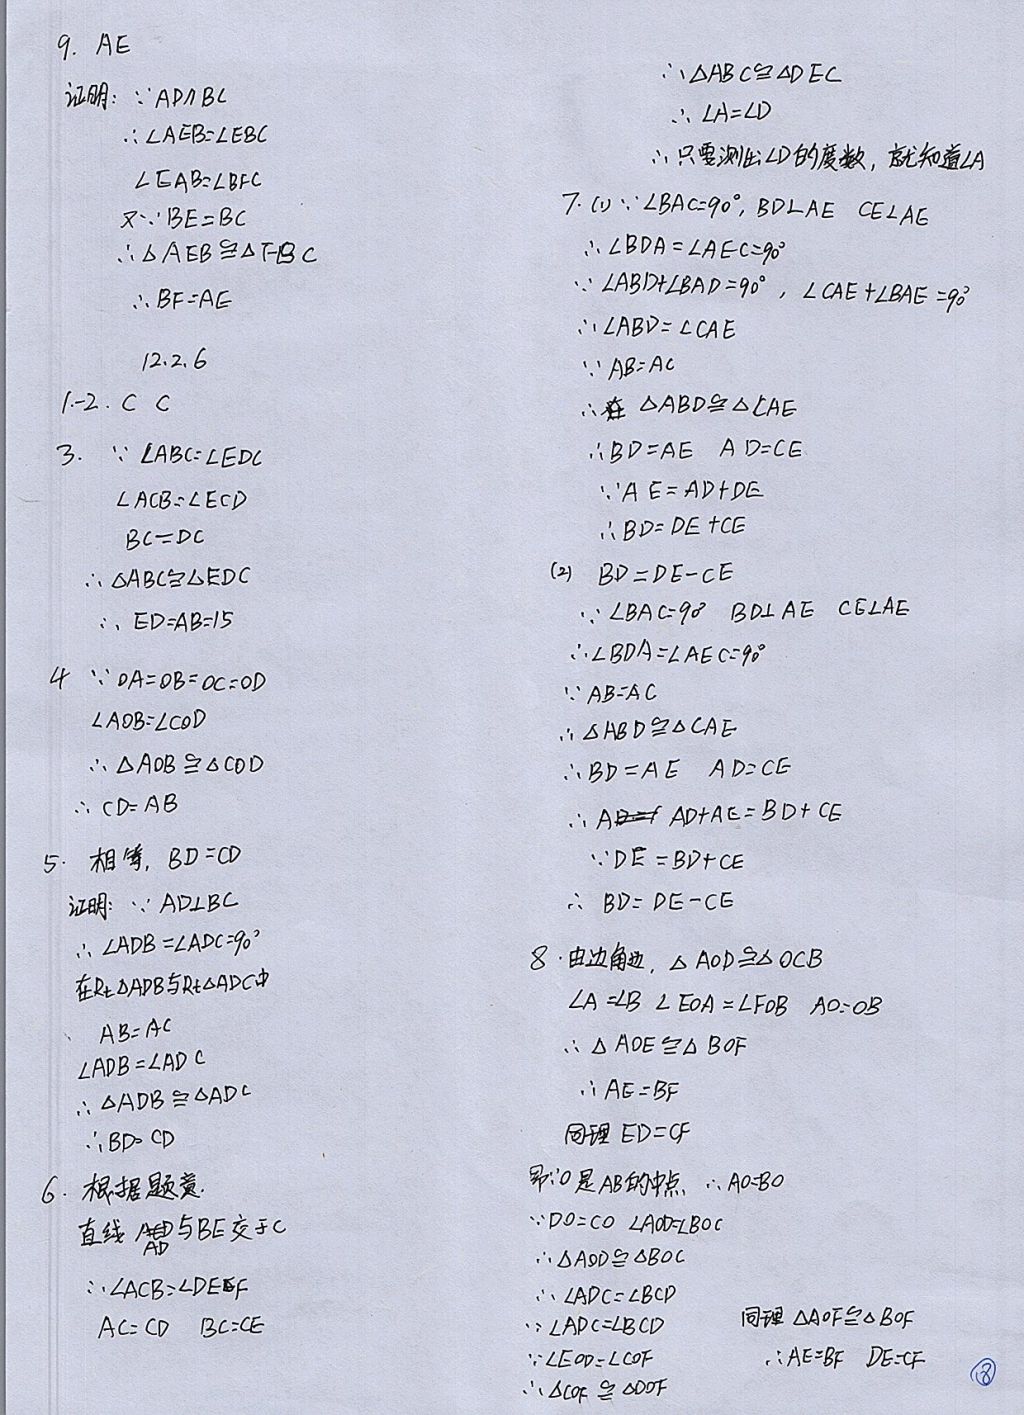 9. AE
证明: ∵ AD∧BC
∴∠AEB=∠EBC
∠EAB=∠BFC
又∵ BE=BC
∴△AEB≌△FBC
∴BF=AE
12.2.6
1.-2. C C
3. ∵ ∠ABC=∠EDC
∠ACB=∠ECD
BC=DC
∴△ABC≌△EDC
∴ ED=AB=15
4 ∵OA=OB=OC=OD
∠AOB=∠COD
∴△AOB≌△COD
∴ CD=AB
5. 相等, BD=CD
证明: ∵ AD⊥BC
∴∠ADB=∠ADC=90°
在Rt△ADB与Rt△ADC中
AB=AC
∠ADB=∠ADC
∴△ADB≌△ADC
∴BD=CD
6. 根据题意.
直线 AD与BE交于C
∴∠ACB=∠DEF
AC=CD BC=CE
∴△ABC≌△DEC
∴∠A=∠D
∴只要测出∠D的度数, 就知道∠A
7. (1) ∵ ∠BAC=90°, BD⊥AE CE⊥AE
∴∠BDA=∠AEC=90°
∵∠ABD+∠BAD=90°, ∠CAE+∠BAE=90°
∴∠ABD=∠CAE
∵ AB=AC
∴在 △ABD≌△CAE
∴BD=AE AD=CE
∵AE=AD+DE
∴BD=DE+CE
(2) BD=DE-CE
∵∠BAC=90° BD⊥AE CE⊥AE
∴∠BDA=∠AEC=90°
∵AB=AC
∴△ABD≌△CAE
∴BD=AE AD=CE
∴ AD+AE=BD+CE
∵DE=BD+CE
∴ BD=DE-CE
8. 由边角边, △AOD≌△OCB
∠A=∠B ∠EOA=∠FOB AO=OB
∴△AOE≌△BOF
∴AE=BF
同理 ED=CF
即∵O是AB的中点 ∴AO=BO
∵DO=CO ∠AOD=∠BOC
∴△AOD≌△BOC
∴∠ADC=∠BCD
∵∠ADC=∠BCD
∵∠EOD=∠COF
∴△COF≌△DOF
同理 △AOF≌△BOF
∴AE=BF DE=CF